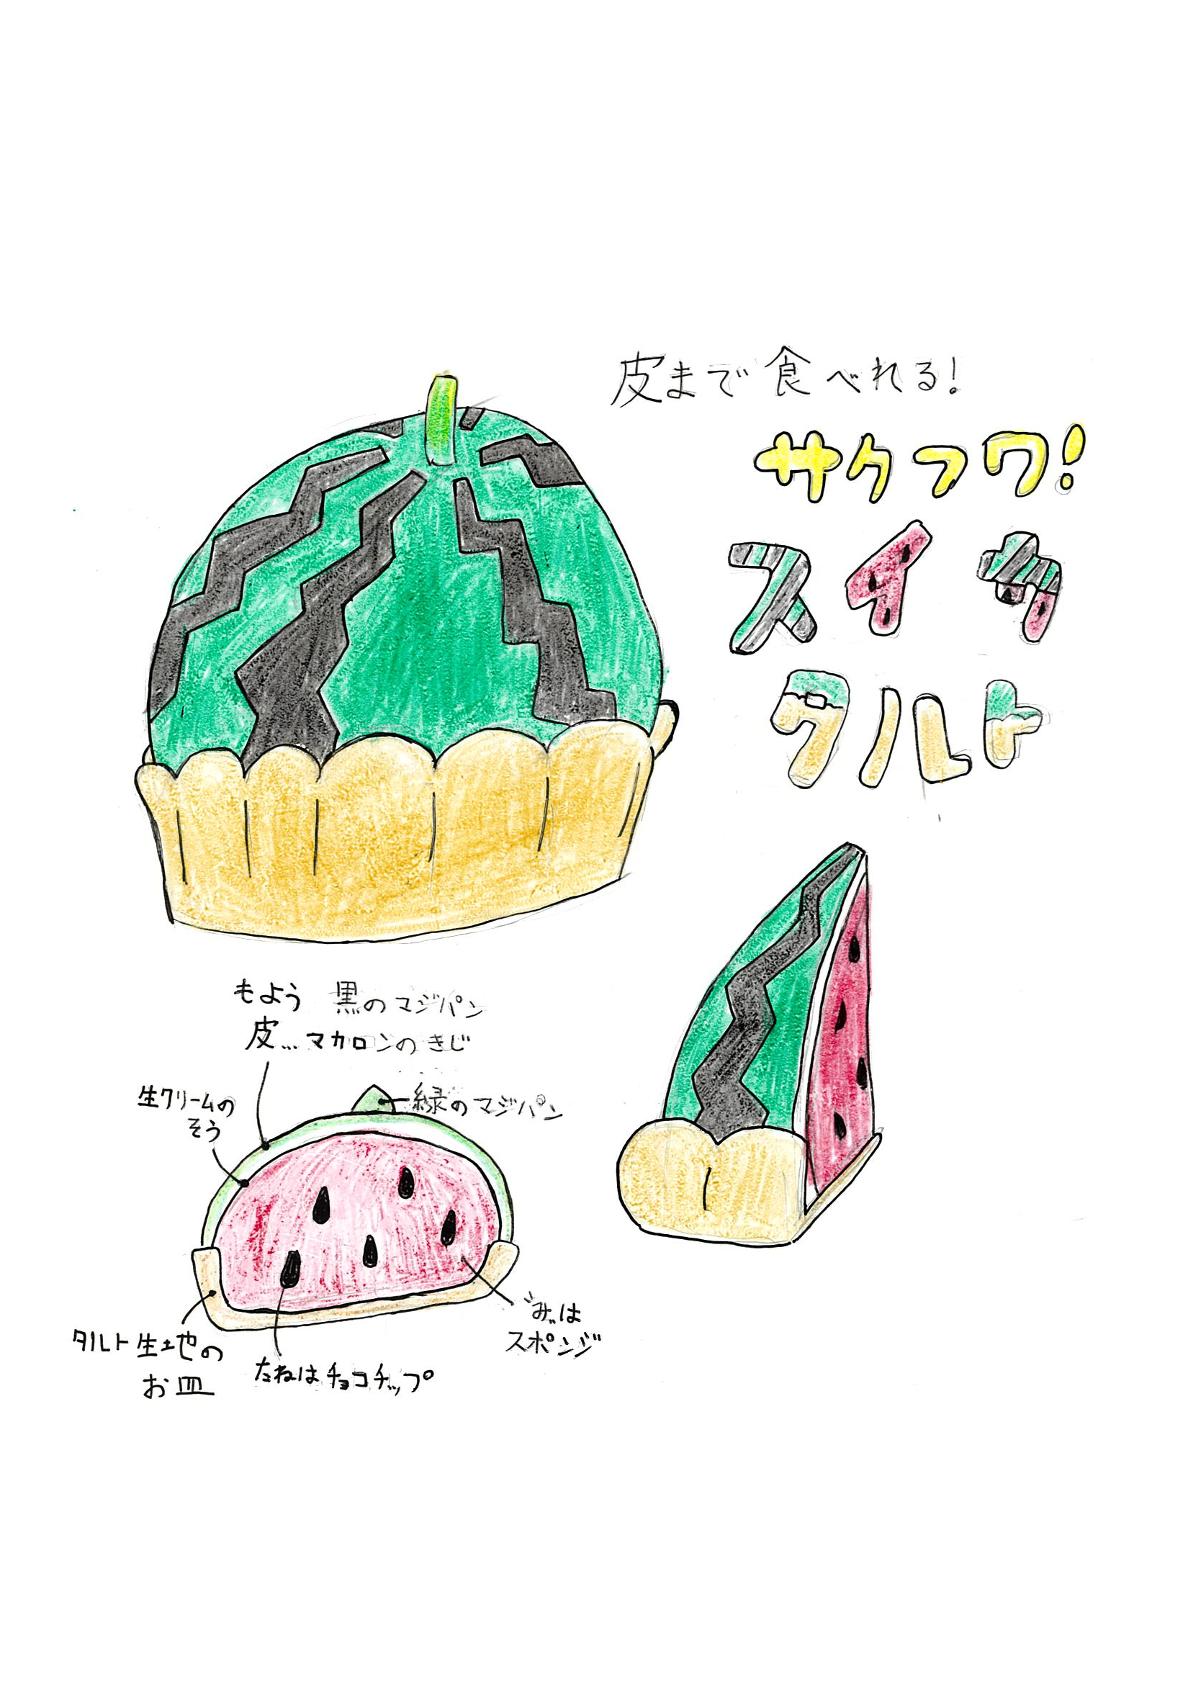 皮まで食べれる!
サクフワ!
スイカ
タルト
もよう 黒のマジパン
皮…マカロンのきじ
生クリームの
そう
緑のマジパン
みは
スポンジ
タルト生土也の
お皿
たねはチョコチップ